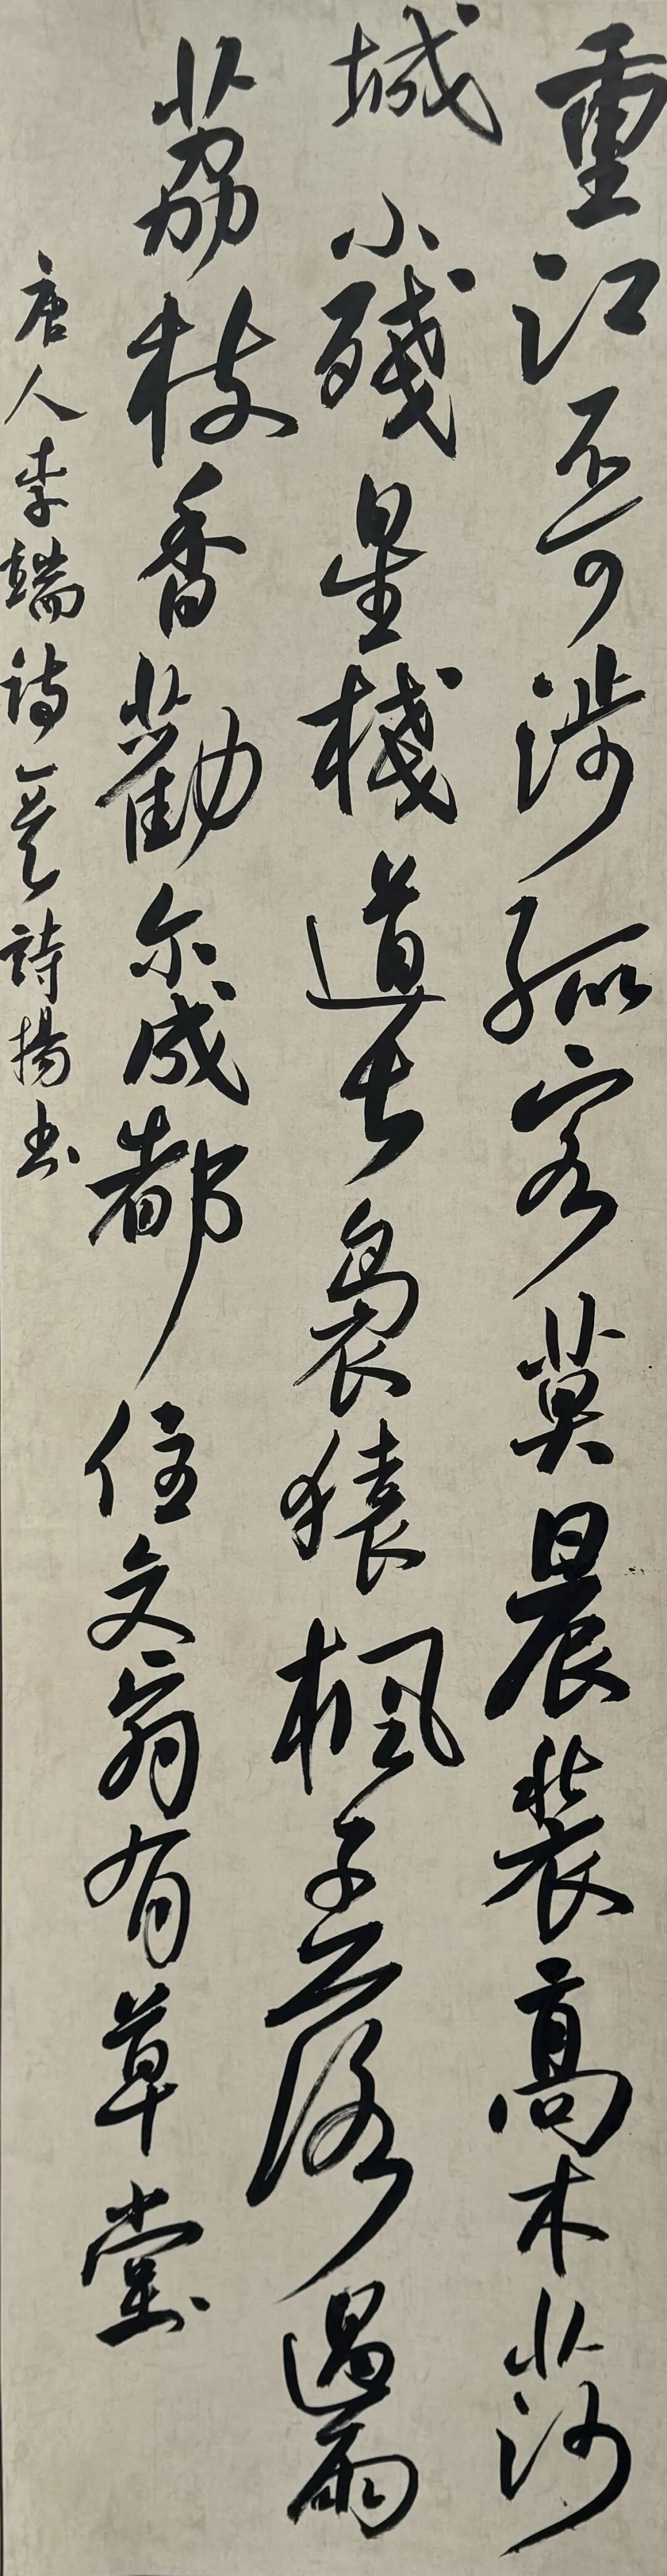 重江不可涉孤客莫晨装高木莎
城小殘星棧道长裊猿楓子落過雨
荔枝香勸尔成都住文翁有草堂
唐人李端诗一首詩揚书